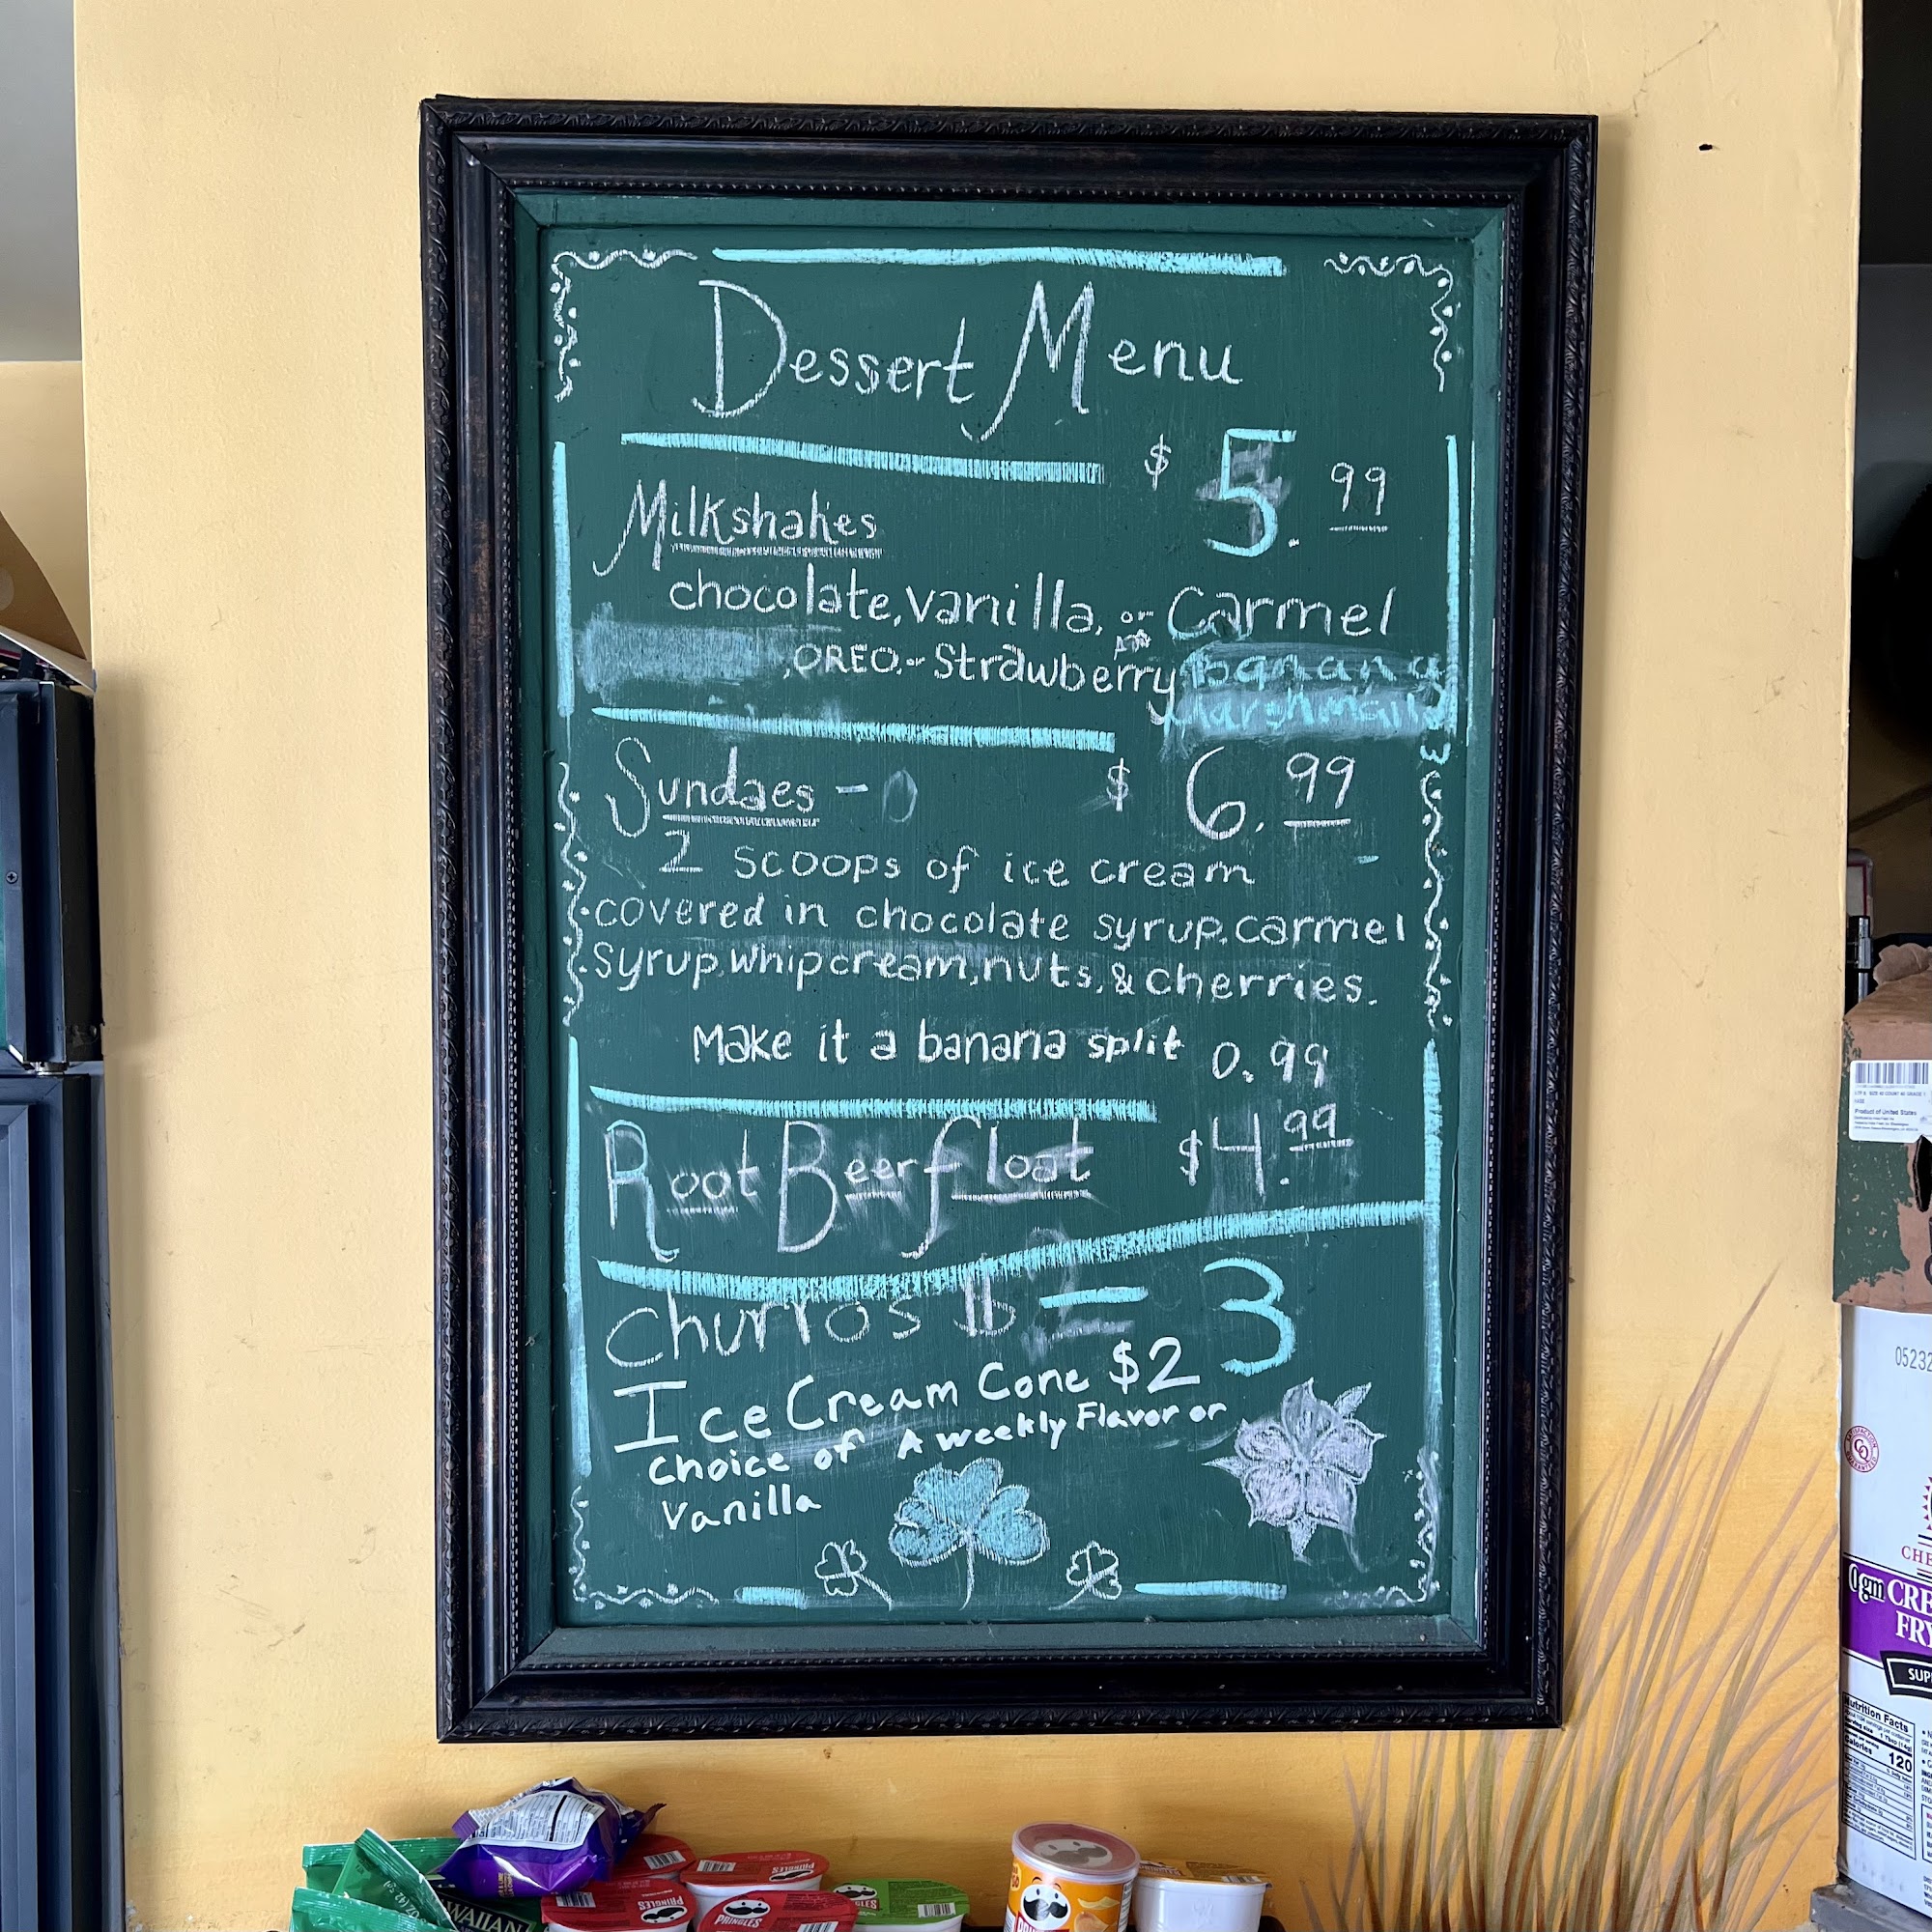 Dessert Menu
$ 5.99
Milkshakes
chocolate, vanilla, or Carmel
, OREO, - Strawberry banana
Marshmallow
Sundaes - $ 6.99
2 scoops of ice cream
covered in chocolate syrup, carmel
syrup, whipcream, nuts, & cherries.
Make it a banana split 0.99
Root Beer float $4.99
churros $ = 3
Ice Cream Cone $2
Choice of A weekly Flavor or
Vanilla
Product of United States
05232
CHE
0gm CRE
FRY
SUP
Nutrition Facts
Calories 120
PRINGLES
PRINGLES
PRINGLES
WAIIAN